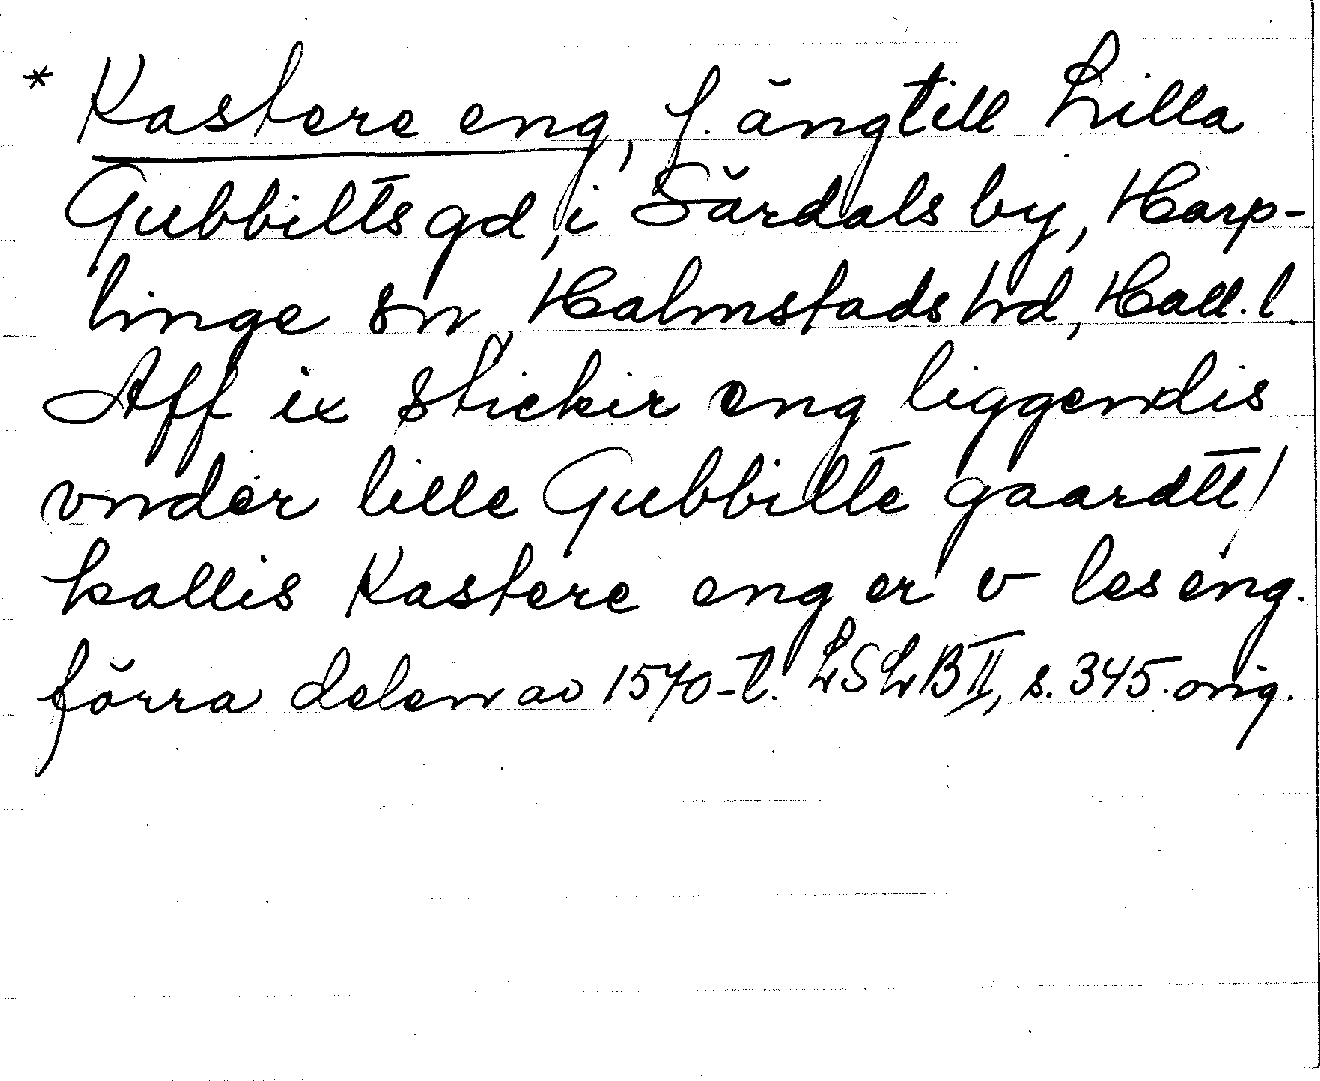 * Kastere eng, f. äng till Lilla
Gubbilts gd, i Särdals by, Harp-
linge sn, Halmstads hd, Hall. l.
Aff ix stickir eng liggendis
vnder lille Gubbilte gaardtt/
kallis Kastere eng er v les eng.
förra delen av 1570-t. LSLB II, s. 345. orig.